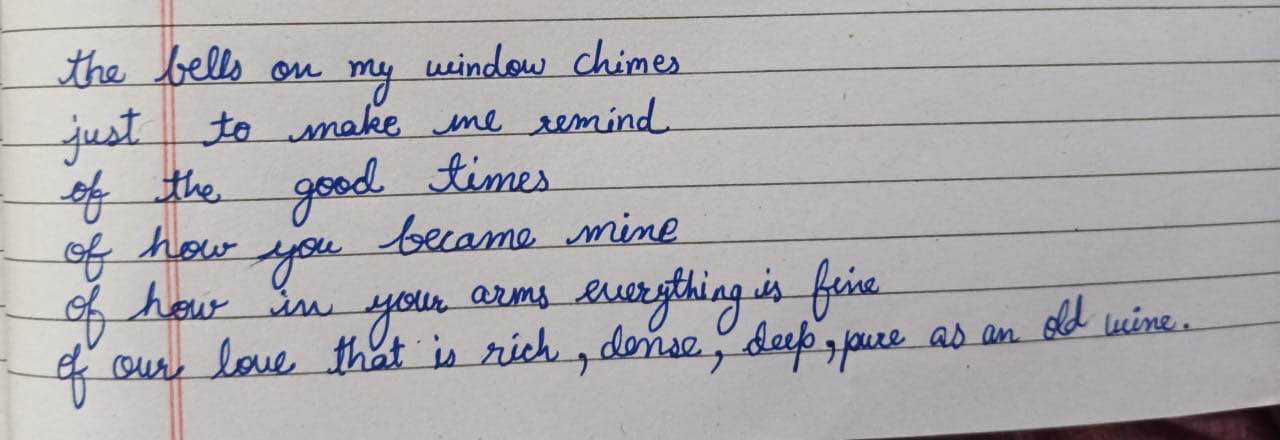 the bells on my window chimes
just to make me remind
of the good times
of how you became mine
of how in your arms everything is fine
of our love that is rich, dense, deep, pure as an old wine.